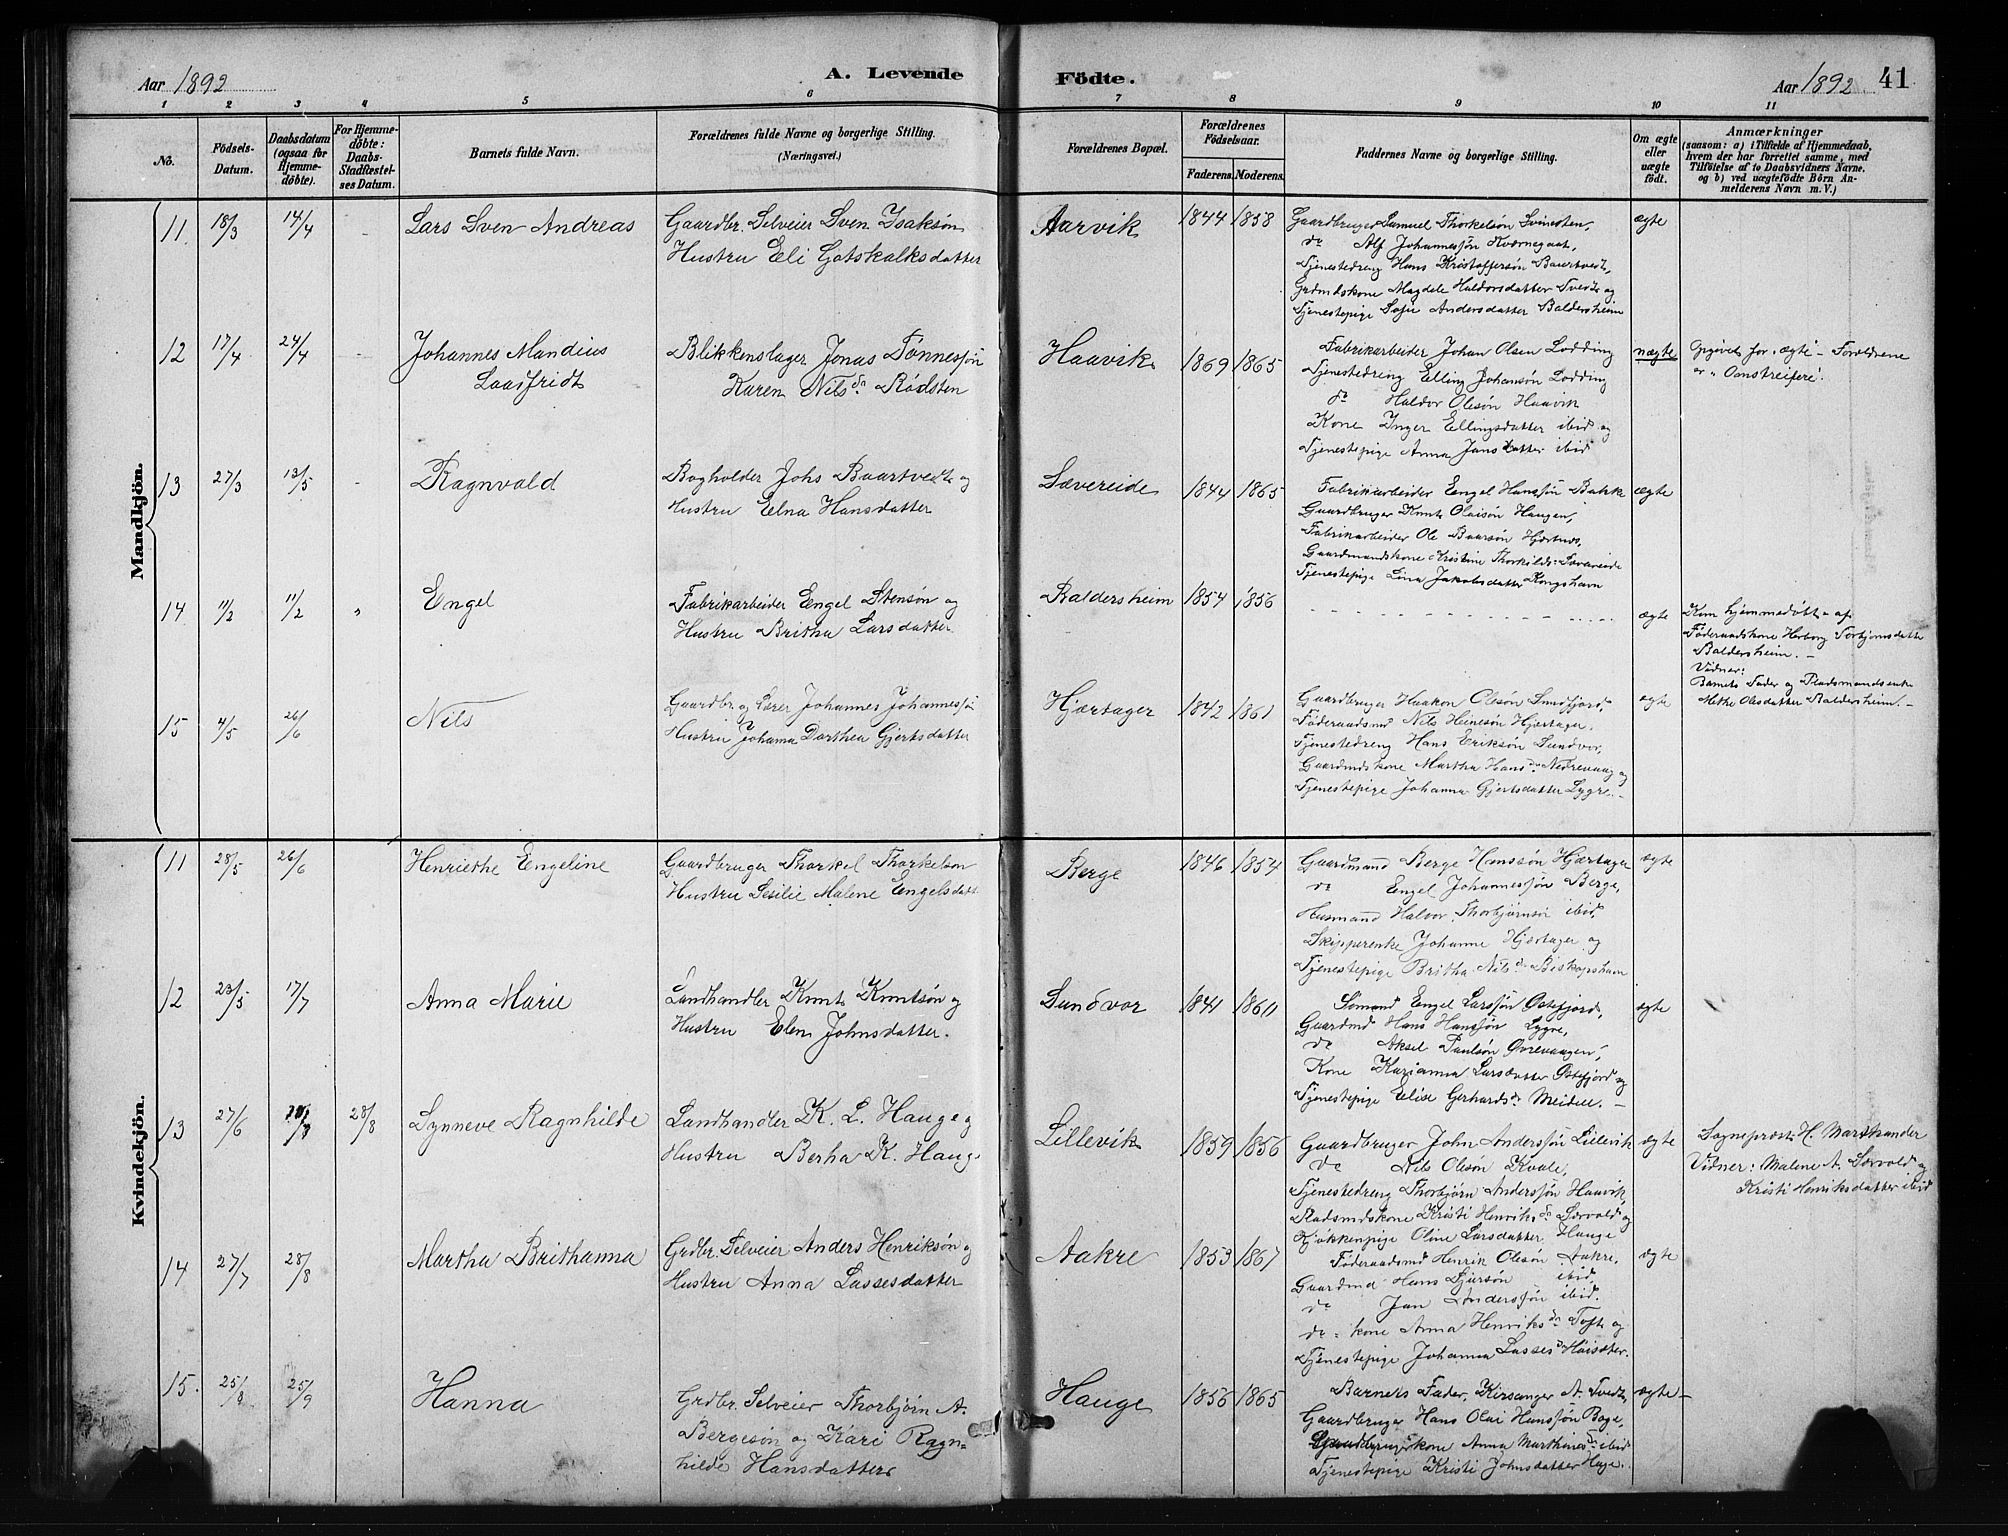 Aar 1892
A. Levende
Födte.
Aar 1892
41
1 2 3 4 5 6 7 8 9 10 11
No.
Födsels-Datum.
Daabsdatum (ogsaa for Hjemme-döbte).
For Hjemme-döbte: Daabs-Stadfæstel-ses Datum.
Barnets fulde Navn.
Forældrenes fulde Navne og borgerlige Stilling. (Næringsvei.)
Forældrenes Bopæl.
Forældrenes Födselsaar.
Faderens. Moderens.
Faddernes Navne og borgerlige Stilling.
Om ægte eller uægte födt.
Anmærkninger (saasom: a) i Tilfælde af Hjemmedaab, hvem der har forrettet samme, med Tilföielse af to Daabsvidners Navne, og b) ved uægtefödte Börn An-melderens Navn m. V.)
Mandkjön.
11 18/3 14/4 - Lars Sven Andreas
Gaardbr. Selveier Sven Isaksøn
Hustru Eli Gotskalksdatter
Aarvik 1844 1858
Gaardbruger Samuel Thorkelsøn Svinesten,
do Alf Johannessøn Kværnegaat,
Tjenestedreng Hans Kristoffersøn Baartvedt,
Grdmdskone Magdele Haldorsdatter Tvedt og
Tjenestepige Sofie Andersdatter Baldersheim
ægte
12 17/4 24/4 Johannes Mandius
Blikkenslager Jonas Tønnessøn
Karen Nilsd. Rødsten
Haavik 1869 1865
Fabrikarbeider Johan Olsen Lodding
Tjenestedreng Elling Johansøn Lodding
do Haldor Olesøn Haavik
Kone Inger Ellingsdatter ibid og
Tjenestepige Anna Jansdatter ibid
uægte
Opgivet for "ægte" - Forældrene
er "Omstreifere".
13 27/3 13/5 - Ragnvald
Bogholder Johs Baartvedt og
Hustru Elna Hansdatter
Sævereide 1844 1865
Fabrikarbeider Engel Hanssøn Bakk
Gaardbruger Knut Olaisøn Haugen,
Fabrikarbeider Ole Baarsøn Hjertnes,
Gaardmandskone Kristine Thorkildsd. Sævereide
Tjenestepige Lina Jakobsdatter Kongshavn
ægte
14 11/2 11/2 " Engel
Fabrikarbeider Engel Stensøn og
Hustru Britha Larsdatter
Baldersheim 1854 1856
ægte
Kun hjemmedøbt af
Føderaadskone Herborg Torbjørnsdatter
Baldersheim. -
Vidner:
Barnets Fader og Pladsmandsenke
Mette Olesdatter Baldersheim. -
15 4/5 26/6 Nils
Gaardbr. og Lærer Johannes Johannessøn
Hustru Johanna Dorthea Gjertsdatter
Hjærtager 1842 1861
Gaardbruger Haakon Olesøn Sundfjord,
Føderaadsmd Nils Heinesøn Hjærtager,
Tjenestedreng Hans Eriksøn Sundvor,
Gaardmdskone Martha Hansd. Nedrevaag og
Tjenestepige Johanna Gjertsdatter Lygre. -
ægte
Kvindekjön.
11 28/5 26/6 Henriethe Engeline
Gaardbruger Thorkel Thorkelsøn
Hustru Sesilie Malene Engelsdatt
Berge 1846 1854
Gaardmand Berge Hanssøn Hjærtager
do Engel Johannessøn Berge,
Husmand Halvor Thorbjørnsøn ibid,
Skipperenke Johanne Hjærtager og
Tjenestepige Britha Nilsd. Biskopshavn
ægte
12 23/5 17/7 Anna Marie
Landhandler Knut Knutsøn og
Hustru Elen Johnsdatter.
Sundvor 1841 1860
Sømand Engel Larssøn Østefjord,
Gaardmd Hans Hanssøn Lygre,
do Aksel Paulsøn Øvrevaagen,
Kone Karianna Larsdatter Østefjord og
Tjenestepige Elise Gerhardsd. Meidell. -
ægte
13 27/6 28/8 Synneve Ragnhilde
Landhandler K. L. Hauge og
Hustru Berha K. Hauge
Lillevik 1859 1856
Gaardbruger John Anderssøn Lillevik
do Nils Olesøn Kvale,
Tjenestedreng Thorbjørn Anderssøn Haavik,
Pladsmdskone Kristi Henriksd. Særvold og
Kjøkkenpige Oline Larsdatter Hauge
ægte
Sogneprest H. Marthander
Vidner: Malene A. Særvold og
Kristi Henriksdatter ibid
14 27/7 28/8 Martha Brithanna
Grdbr. Selveier Anders Henriksøn og
Hustru Anna Lassesdatter
Aakre 1853 1867
Føderaadsmd Henrik Olesøn Aakre,
Gaardmd Hans Sjursøn ibid,
do Jan Anderssøn ibid.
do - kone Anna Henriksd. Tofte og
Tjenestepige Johanna Lassesd. Høisæter.
ægte
15. 25/8 25/9 Hanna
Grdbr. Selveier Thorbjørn A.
Bergesøn og Kari Ragn-
hilde Hansdatter
Hauge 1856 1865
Barnets Fader, Kirsanger A. Tvedt,
Gaardbruger Hans Olai Hanssøn Boge,
kone Anna Marthinesd. ibid
Tjenestepige Kristi Johnsdatter Hage.
ægte -